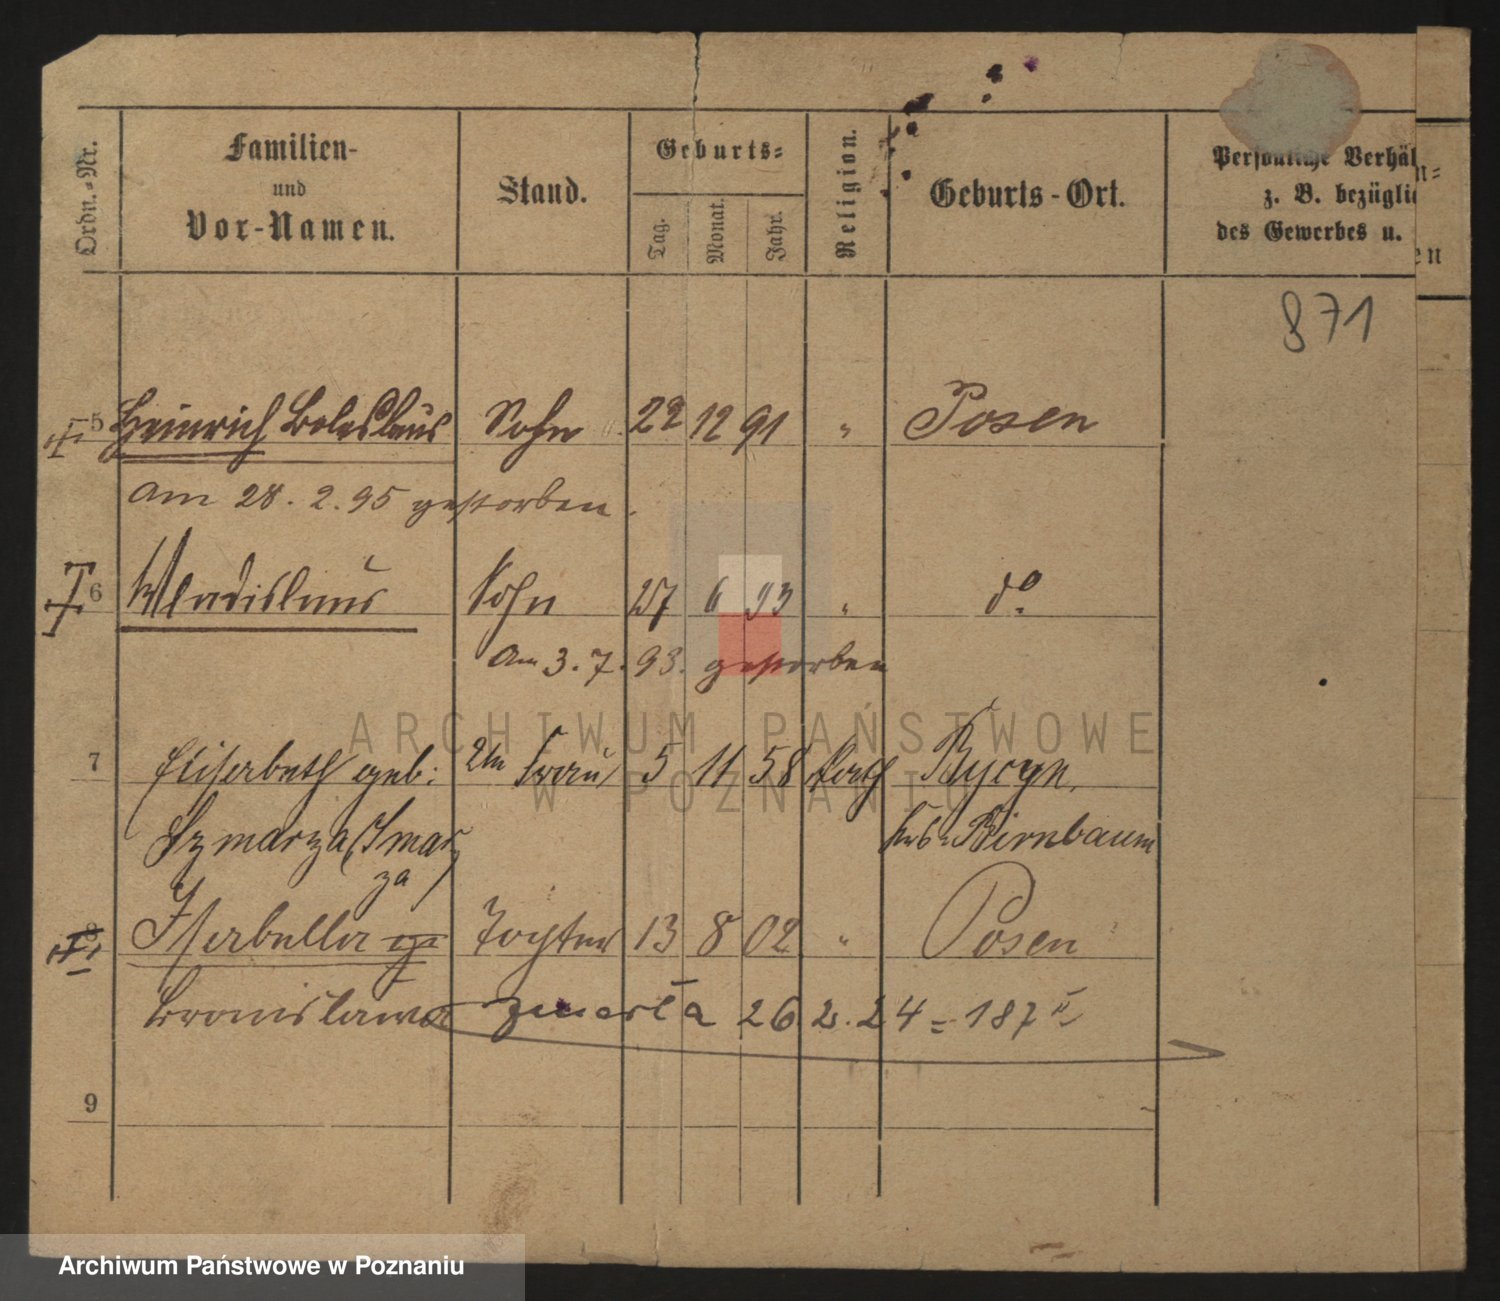 Ordn.-Nr.
Familien-
und
Vor-Namen.
Stand.
Geburts-
Tag.
Monat.
Jahr.
Religion.
Geburts-Ort.
Persönliche Verhäl
z. B. bezüglic
des Gewerbes u.
n-
en
871
5 Heinrich Boleslaus Sohn 22 12 91 " Posen
am 28. 2. 95 gestorben.
6 Wladislaus Sohn 27 6 93 " do
am 3. 7. 93. gestorben
7 Elisabeth geb: 2te Frau 5 11 58 kath
Szmarza (Smar
za) Birnbaum
8 Isabella Tochter 13 8 02 " Posen
Bronislawa zmarła 26 2. 24 = 187 II
9
ARCHIWUM PAŃSTWOWE
W POZNANIU
Archiwum Państwowe w Poznaniu